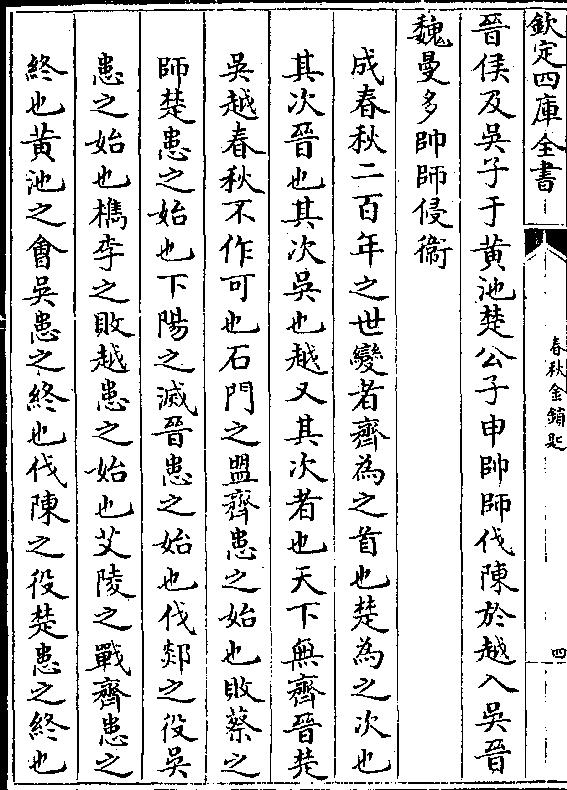 欽定四庫全書
春秋金鎖匙
四
晉侯及吳子于黃池楚公子申帥師伐陳於越入吳晉
魏曼多帥師侵衞
成春秋二百年之世變者齊為之首也楚為之次也
其次晉也其次吳也越又其次者也天下無齊晉楚
吳越春秋不作可也石門之盟齊患之始也敗蔡之
師楚患之始也下陽之滅晉患之始也伐郯之役吳
患之始也檇李之敗越患之始也艾陵之戰齊患之
終也黃池之會吳患之終也伐陳之役楚患之終也